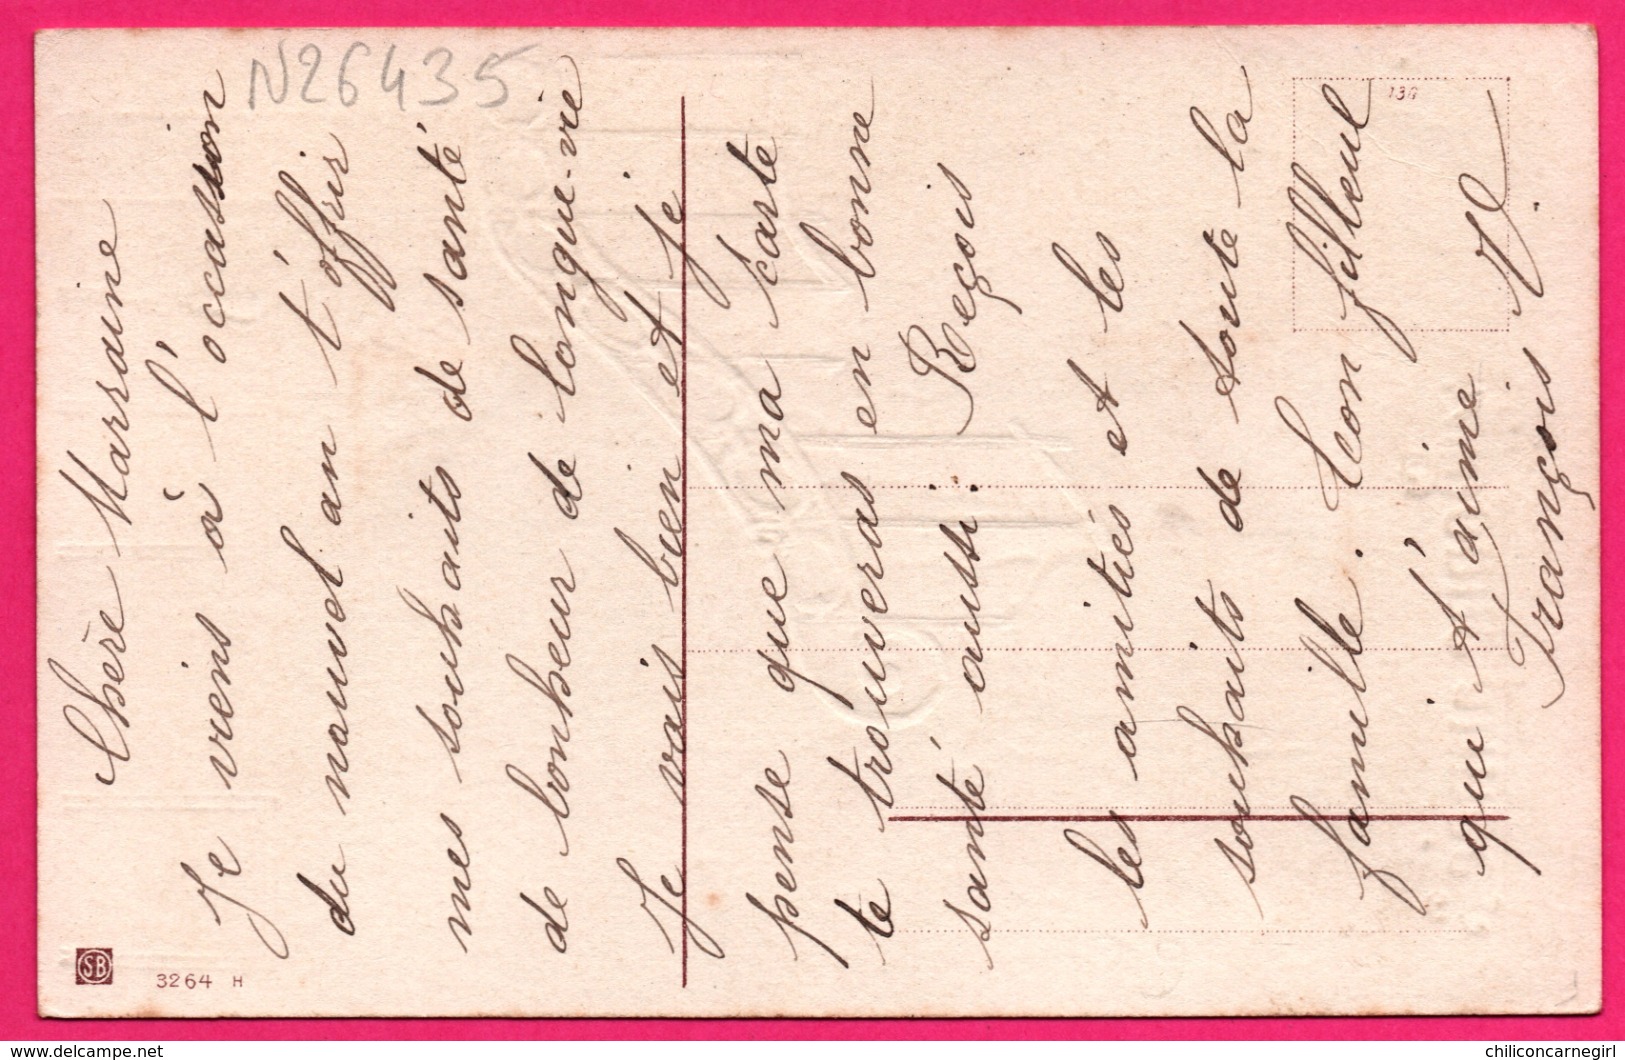 N26435
Chère Marraine
Je viens à l'occassion
du nouvel an t'offrir
mes souhaits de santé
de bonheur de longue-vie
Je vais bien et je
pense que ma carte
te trouveras en bonne
santé aussi. Reçois
les amitiés et les
souhaits de toute la
famille. Leon filleul
qui t'aime
François V.
SB
3264 H
138
chiliconcarnegirl